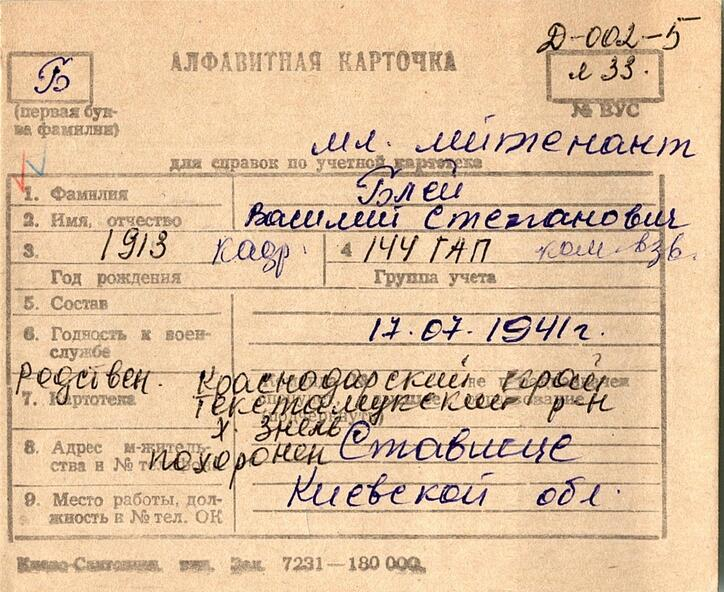 Д-002-5
Б
АЛФАВИТНАЯ КАРТОЧКА
л 33.
(первая бук-
ва фамилии)
№ ВУС
мл. лейтенант
для справок по учетной картотеке
1. Фамилия Блей
2. Имя, отчество Василий Степанович
3. 1913 кадр. 4 144 ГАП ком. взв.
Год рождения Группа учета
5. Состав
6. Годность к воен-
службе
17.07.1941 г.
Родствен. Краснодарский край
7. Картотека р-н
х.
8. Адрес м-житель-
ства и № тел.
похоронен Ставище
Киевской обл.
9. Место работы, дол-
жность и № тел. ОК
тип. Зак. 7231—180 000.